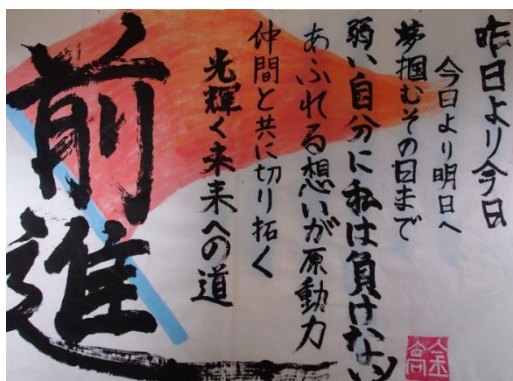 昨日より今日
今日より明日へ
夢掴むその日まで
弱い自分に私は負けない!
あふれる想いが原動力
仲間と共に切り拓く
光輝く未来への道
前進